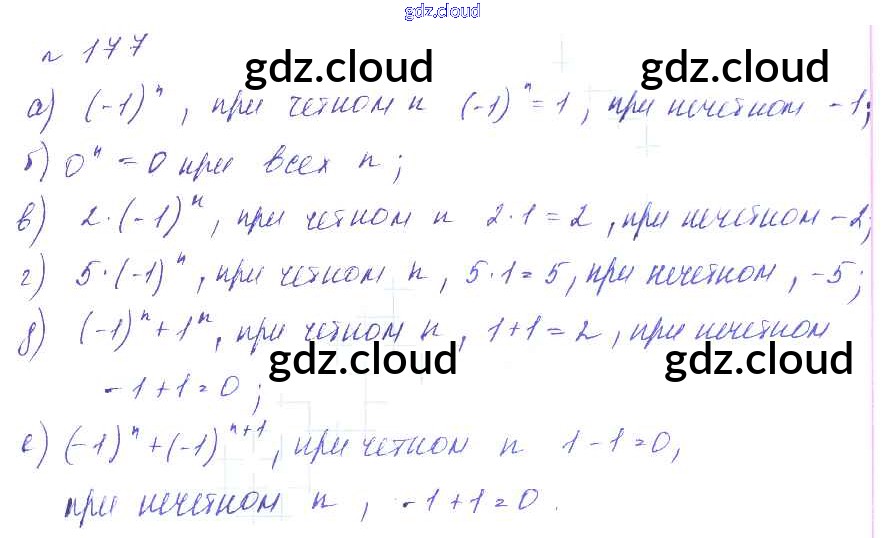 gdz.cloud
№ 177
gdz.cloud gdz.cloud
а) (-1)ⁿ, при четном n (-1)ⁿ = 1, при нечетном -1;
б) 0ⁿ = 0 при всех n;
в) 2·(-1)ⁿ, при четном n 2·1 = 2, при нечетном -2;
г) 5·(-1)ⁿ, при четном n, 5·1 = 5, при нечетном, -5;
д) (-1)ⁿ + 1ⁿ, при четном n, 1+1 = 2, при нечетном
gdz.cloud gdz.cloud
-1+1=0;
е) (-1)ⁿ + (-1)ⁿ⁺¹, при четном n 1-1=0,
при нечетном n, -1+1=0.